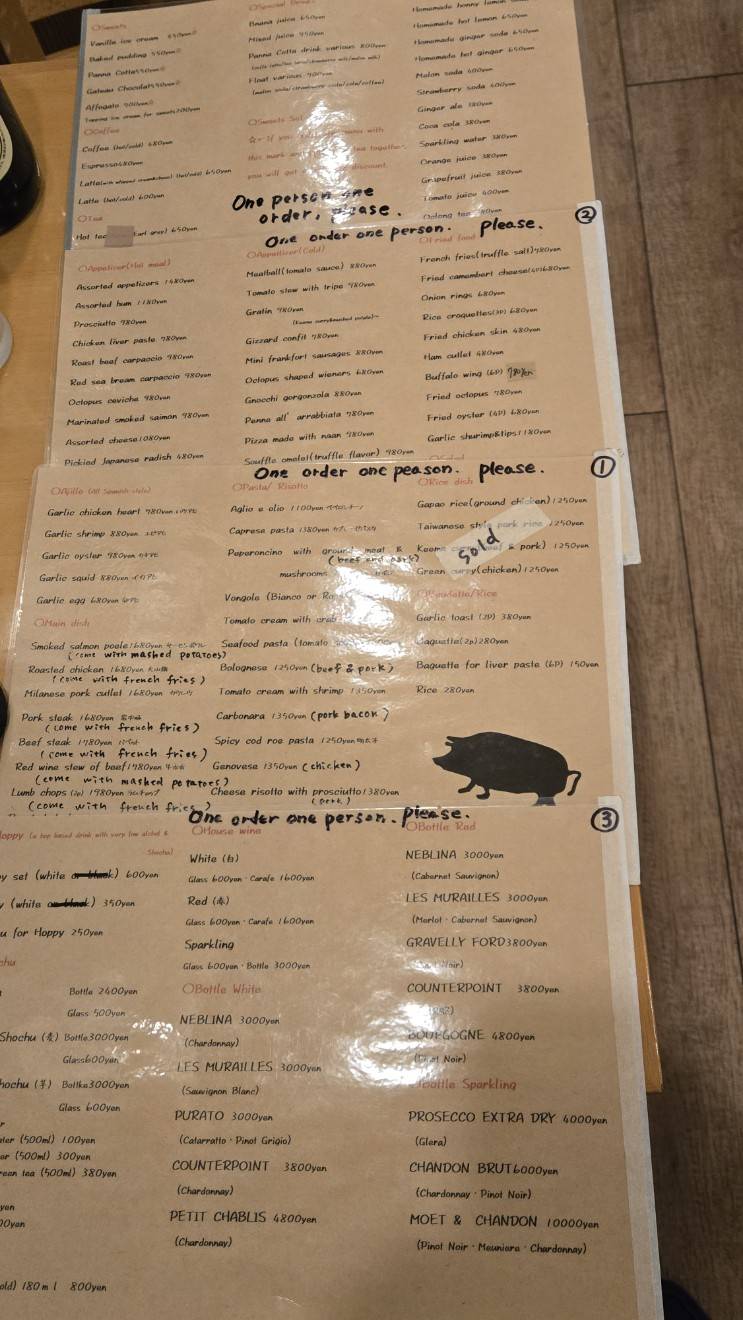 ○Sweets
Vanilla ice cream 550yen
Baked pudding 550yen
Panna Cotta550yen
Gateau Chocolat550yen
Affogato 900yen
Topping ice cream for sweets200yen
○Coffee
Coffee (hot/cold) 480yen
Espresso480yen
Latte(with whipped cream) (hot/cold) 650yen
Latte (hot/cold) 600yen
○Tea
Hot tea (Earl grey) 650yen
○Special Drinks
Banana juice 650yen
Mixed juice 950yen
Panna Cotta drink various 800yen
Float various 900yen
(melon soda/strawberry soda/cola/coffee)
○Sweets Set
☆← If you
with
this mark
together,
you will get
discount.
Homemade honey lemon
Homemade hot lemon 650yen
Homemade ginger soda 650yen
Homemade hot ginger 650yen
Melon soda 600yen
Strawberry soda 600yen
Ginger ale 380yen
Coca cola 380yen
Sparkling water 380yen
Orange juice 380yen
Grapefruit juice 380yen
Tomato juice 400yen
Oolong tea 380yen
One person one
order, please.
One order one person. please. ②
○Appetizer(Hot meal)
Assorted appetizers 1480yen
Assorted ham 1180yen
Prosciutto 980yen
Chicken liver paste 780yen
Roast beef carpaccio 980yen
Red sea bream carpaccio 980yen
Octopus ceviche 980yen
Marinated smoked salmon 980yen
Assorted cheese1080yen
Pickled Japanese radish 480yen
○Appetizer(Cold)
Meatball(tomato sauce) 880yen
Tomato stew with tripe 980yen
Gratin 980yen
Gizzard confit 780yen
Mini frankfort sausages 880yen
Octopus shaped wieners 680yen
Gnocchi gorgonzola 880yen
Penne all' arrabbiata 780yen
Pizza made with naan 980yen
Souffle omelet(truffle flavor) 980yen
○Fried food
French fries(truffle salt)980yen
Fried camembert cheese(4P)680yen
Onion rings 680yen
Rice croquettes(3P) 680yen
Fried chicken skin 480yen
Ham cutlet 480yen
Buffalo wing (6P) 780yen
Fried octopus 780yen
Fried oyster (4P) 680yen
Garlic shurimp&tips1180yen
○Salad
One order one peason. please. ①
○Ajillo (All Spanish style)
Garlic chicken heart 980yen
Garlic shrimp 880yen
Garlic oyster 980yen
Garlic squid 880yen
Garlic egg 680yen
○Main dish
Smoked salmon poele1680yen
(come with mashed potatoes)
Roasted chicken 1680yen
(come with french fries)
Milanese pork cutlet 1680yen
Pork steak 1680yen
(come with french fries)
Beef steak 1980yen
(come with french fries)
Red wine stew of beef1980yen
(come with mashed potatoes)
Lumb chops (2p) 1980yen
(come with french fries)
○Pasta/ Risotto
Aglio e olio 1100yen
Capresa pasta 1380yen
Peperoncino with ground meat &
(beef and pork)
mushrooms
Vongole (Bianco or
Tomato cream with crab
Seafood pasta (tomato
Bolognese 1250yen (beef & pork)
Tomato cream with shrimp 1350yen
Carbonara 1350yen (pork bacon)
Spicy cod roe pasta 1250yen
Genovese 1350yen (chicken)
Cheese risotto with prosciutto1380yen
(pork)
○Rice dish
Gapao rice(ground chicken)1250yen
Taiwanese style pork rice 1250yen
Keema curry(beef & pork) 1250yen
Sold
Green curry(chicken)1250yen
○Baguette/Rice
Garlic toast (2P) 380yen
Baguette(2p)280yen
Baguette for liver paste (6P) 150yen
Rice 280yen
One order one person. please. ③
oppy (a hop based drink with very low alcohol &
Shochu)
y set (white or black) 600yen
y (white or black) 350yen
u for Hoppy 250yen
chu
Bottle 2400yen
Glass 500yen
Shochu (麦) Bottle3000yen
Glass600yen
hochu (芋) Bottle3000yen
Glass 600yen
ter (500ml) 100yen
er (500ml) 300yen
een tea (500ml) 380yen
yen
00yen
old) 180ml 800yen
○House wine
White (白)
Glass 600yen・Carafe 1600yen
Red (赤)
Glass 600yen・Carafe 1600yen
Sparkling
Glass 600yen・Bottle 3000yen
○Bottle White
NEBLINA 3000yen
(Chardonnay)
LES MURAILLES 3000yen
(Sauvignon Blanc)
PURATO 3000yen
(Catarratto・Pinot Grigio)
COUNTERPOINT 3800yen
(Chardonnay)
PETIT CHABLIS 4800yen
(Chardonnay)
○Bottle Red
NEBLINA 3000yen
(Cabernet Sauvignon)
LES MURAILLES 3000yen
(Merlot・Cabernet Sauvignon)
GRAVELLY FORD3800yen
(Pinot Noir)
COUNTERPOINT 3800yen
BOURGOGNE 4800yen
(Pinot Noir)
○Bottle Sparkling
PROSECCO EXTRA DRY 4000yen
(Glera)
CHANDON BRUT6000yen
(Chardonnay・Pinot Noir)
MOET & CHANDON 10000yen
(Pinot Noir・Meuniere・Chardonnay)